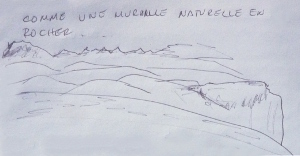 COMME UNE MURAILLE NATURELLE EN
ROCHER